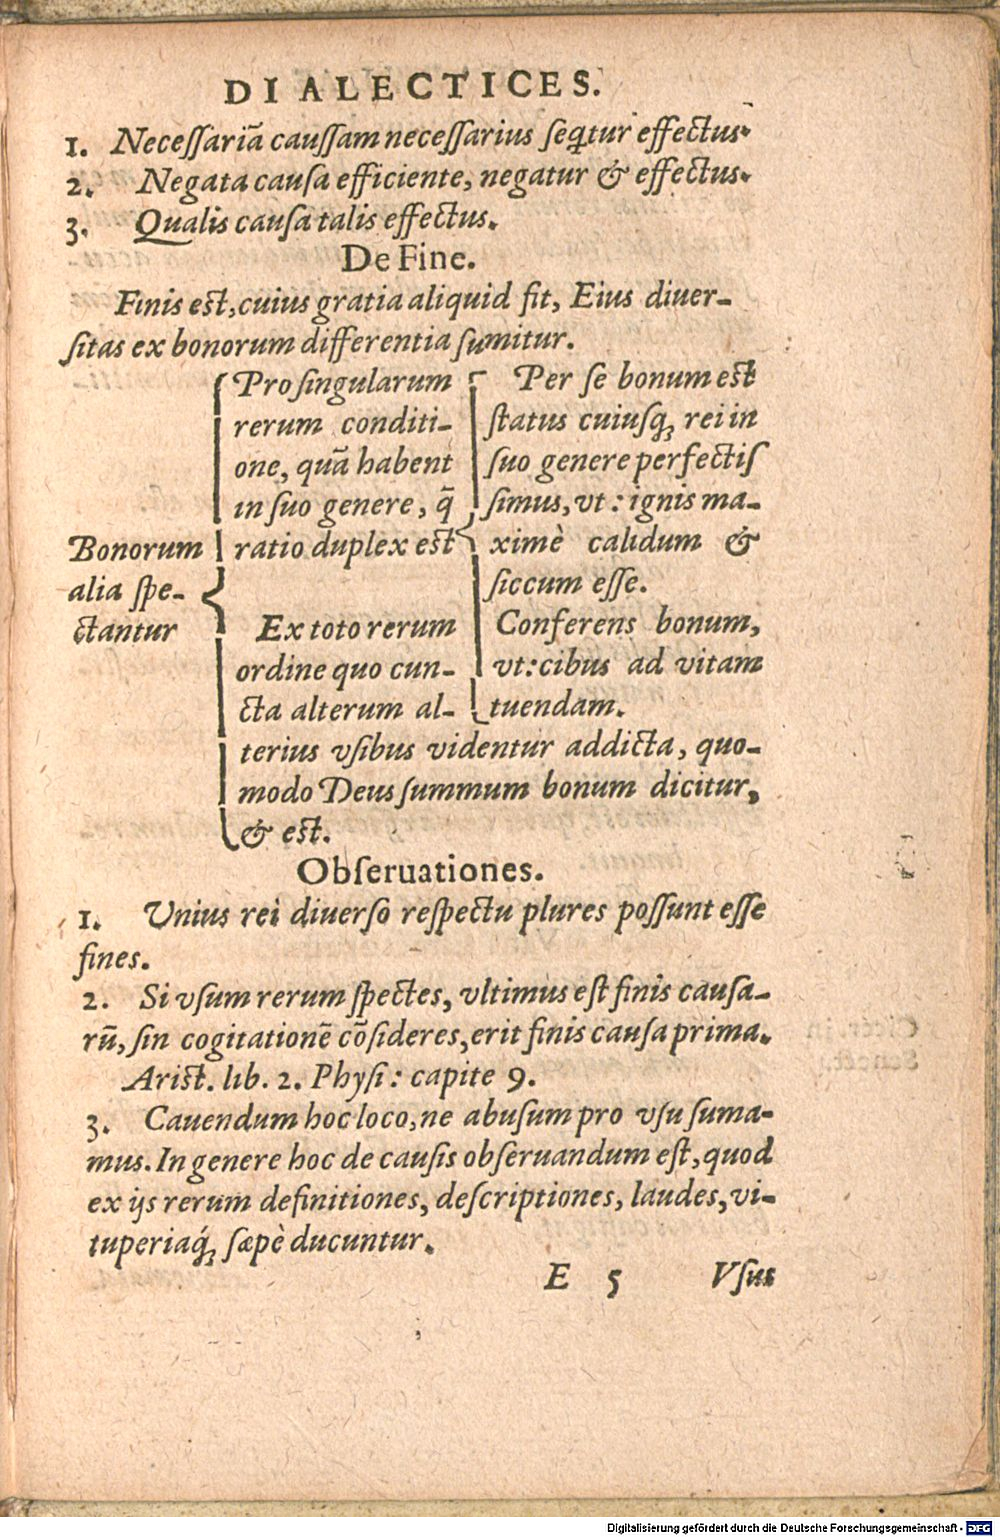 DIALECTICES.
1. Neceſſariā cauſſam neceſſarius ſeq̃tur effectus.
2. Negata cauſa efficiente, negatur & effectus.
3. Qualis cauſa talis effectus.
De Fine.
Finis est, cuius gratia aliquid fit, Eius diuer-
ſitas ex bonorum differentia ſumitur.
Bonorum
alia ſpe-
ctantur
Pro ſingularum
rerum conditi-
one, quā habent
in ſuo genere, q̄
ratio duplex est
Per se bonum est
ſtatus cuiuſq; rei in
ſuo genere perfectiſ
ſimus, vt: ignis ma-
ximè calidum &
ſiccum eſſe.
Conferens bonum,
vt: cibus ad vitam
tuendam.
Ex toto rerum
ordine quo cun-
cta alterum al-
terius vſibus videntur addicta, quo-
modo Deus ſummum bonum dicitur,
& est.
Obſeruationes.
1. Vnius rei diuerſo reſpectu plures poſſunt eſſe
fines.
2. Si vſum rerum ſpectes, vltimus eſt finis cauſa-
rū, ſin cogitationē cōſideres, erit finis cauſa prima.
Arist. lib. 2. Phyſi: capite 9.
3. Cauendum hoc loco, ne abuſum pro vſu ſuma-
mus. In genere hoc de cauſis obſeruandum eſt, quod
ex ijs rerum definitiones, deſcriptiones, laudes, vi-
tuperiaq́; ſæpè ducuntur.
E 5 Vſus
Digitalisierung gefördert durch die Deutsche Forschungsgemeinschaft - DFG